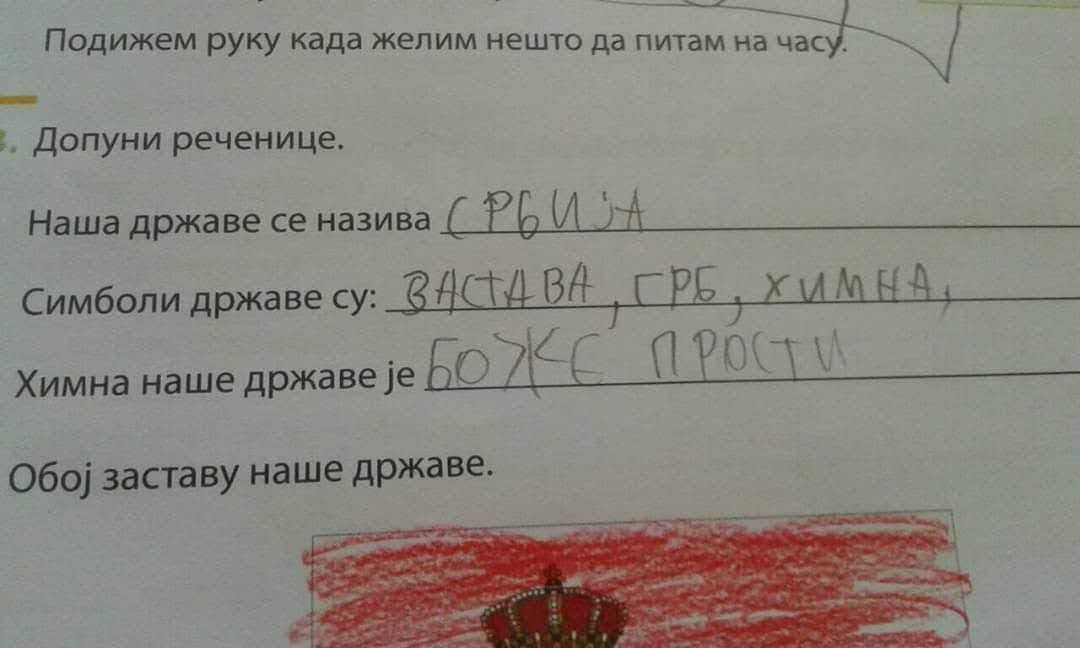 Подижем руку када желим нешто да питам на часу.
3. Допуни реченице.
Наша државе се назива СРБИЈА
Симболи државе су: ВАСТАВА, ГРБ, ХИМНА,
Химна наше државе је БОЖЕ ПРОСТИ
Обој заставу наше државе.